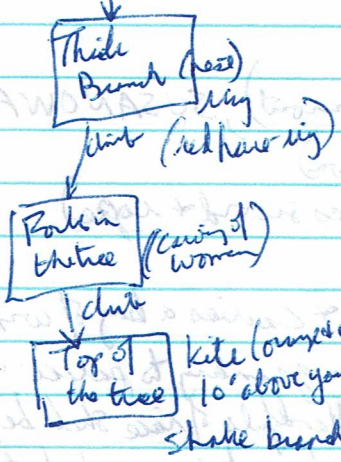 Thick
Branch (nest)
ring
climb
Fork in
the tree
(carving of
woman)
climb
Top of
the tree
Kite (orange +
10' above you
shake branch